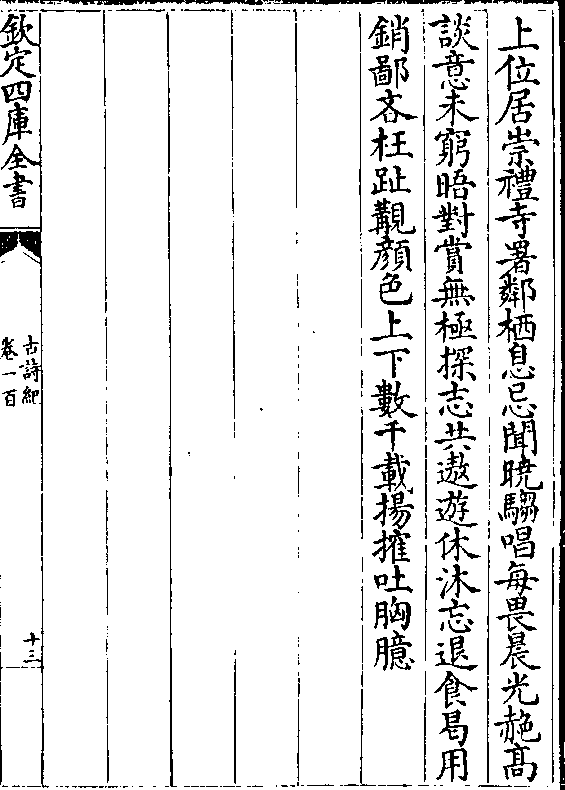 上位居崇禮寺署鄰栖息忌聞曉騶唱每畏晨光赩髙
談意未窮晤對賞無極探志共遨遊休沐忘退食曷用
銷鄙吝枉趾覯顔色上下數千載揚搉吐胸臆
欽定四庫全書
古詩紀
卷一百
十三